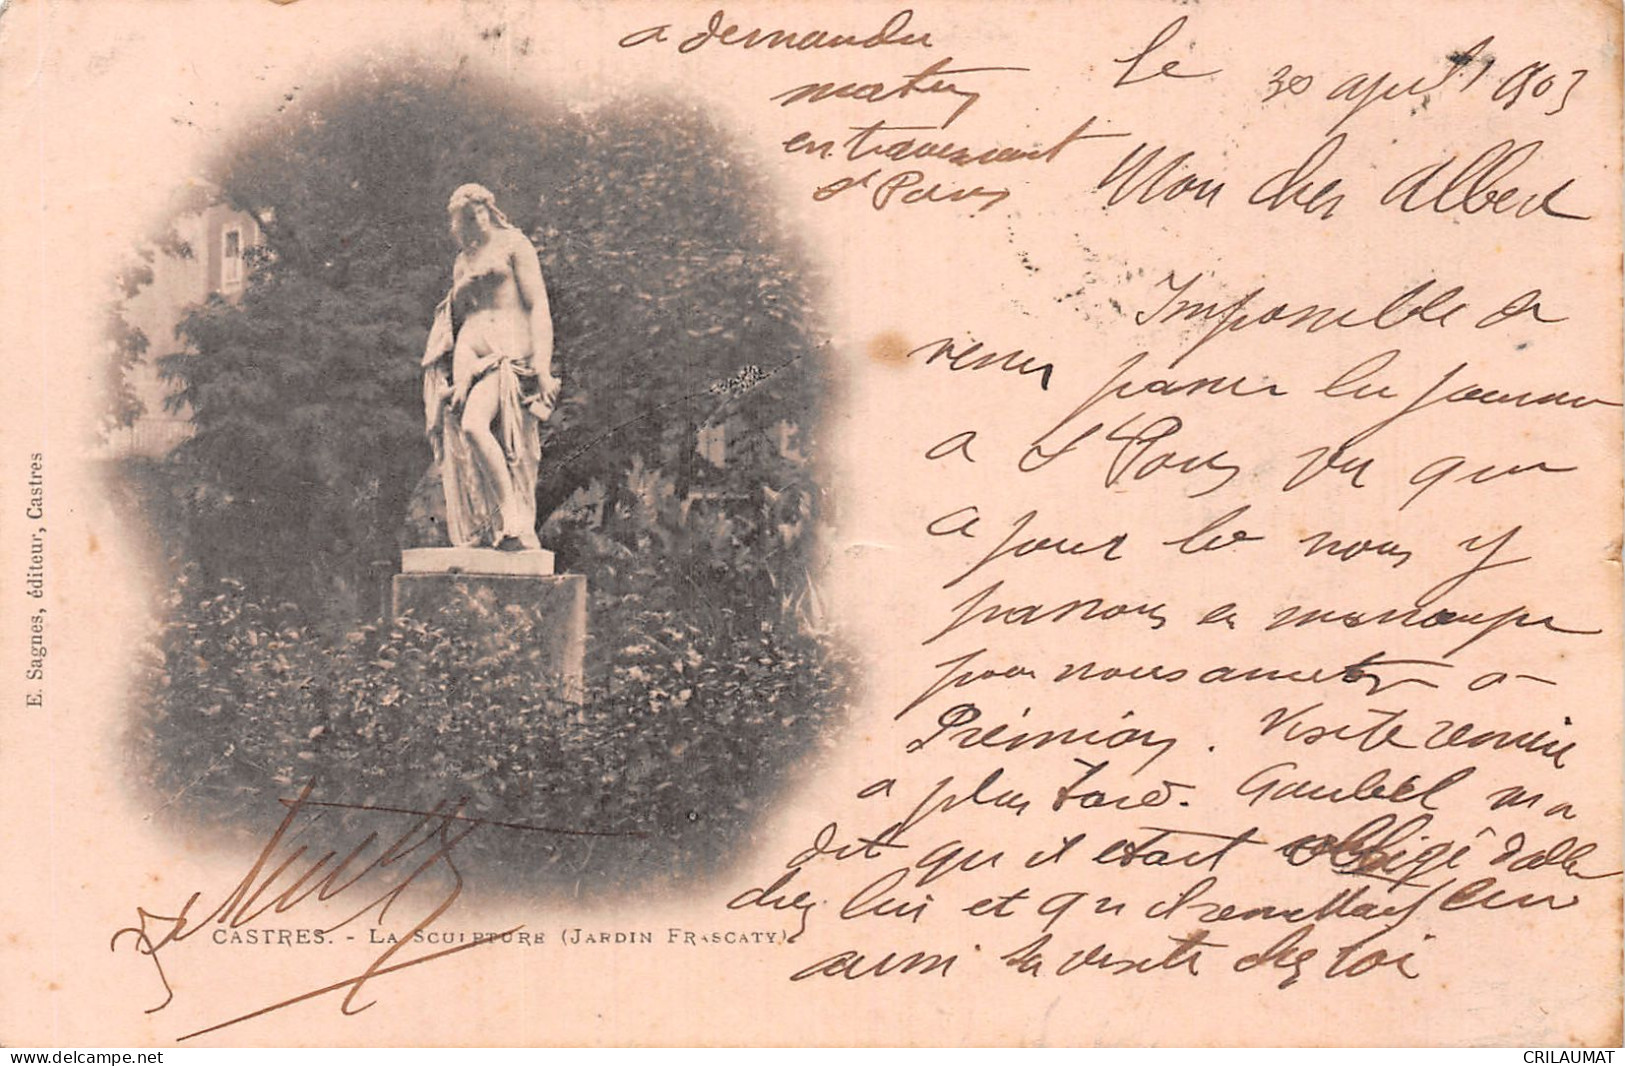 Le 30 april 1903
Mon cher Albert
Impossible de
venir passer la journee
a St Pons vu que
a jour la nous y
passons en
pour nous a
Prémian. Visite remise
a plus tard. Gaubel m'a
dit qu'il etait obligé d'aller
chez lui et qu'il remettait lui
aussi sa visite chez toi
a demander
matin
en traversant
St Pons
CASTRES. - LA SCULPTURE (JARDIN FRASCATY).
E. Sagnes, éditeur, Castres
CRILAUMAT
www.delcampe.net